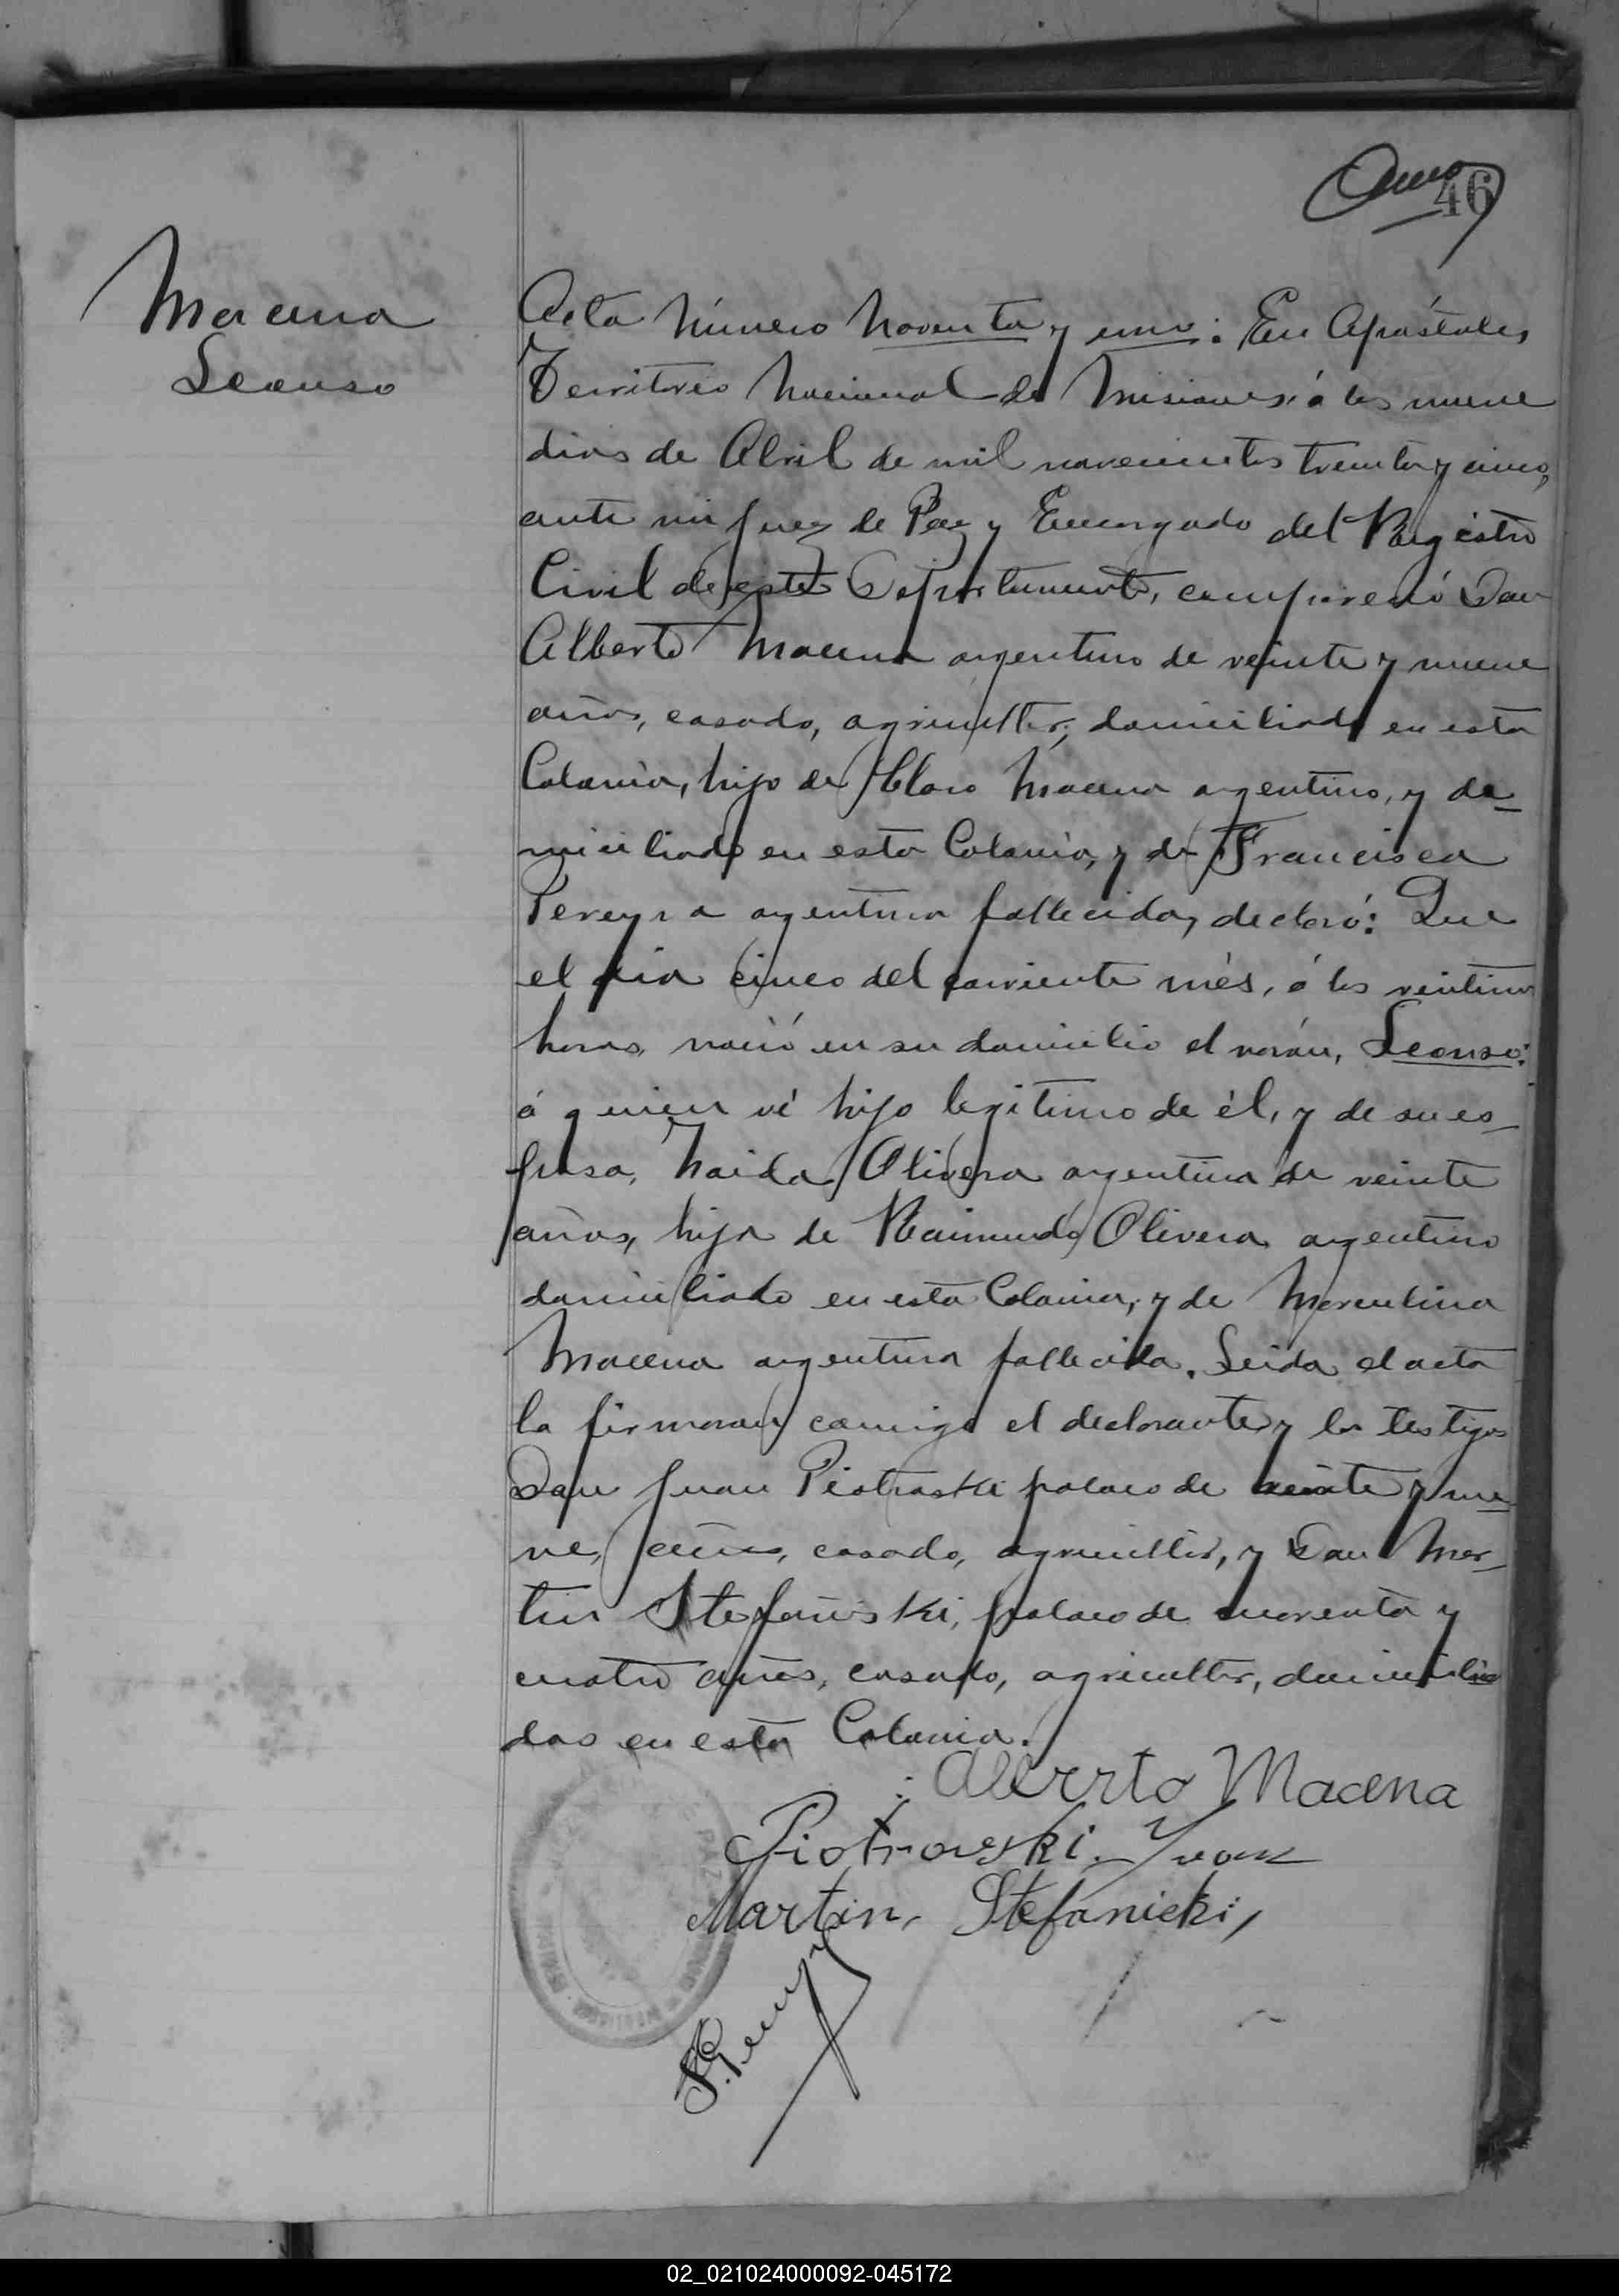 46
Macena
Leonso
Acta Número Noventa y uno: En Apóstoles,
Territorio Nacional de Misiones: á los nueve
dias de Abril de mil novecientos treinta y cinco,
ante mi Juez de Paz y Encargado del Registro
Civil de este Departamento, compareció Don
Alberto Macena argentino de veinte y nueve
años, casado, agricultor, domiciliado en esta
Colonia, hijo de Claro Macena argentino, y do-
miciliado en esta Colonia, y de Francisca
Pereyra argentina fallecida, declaró: Que
el dia cinco del corriente més, á las veintiuna
horas, nació en su domicilio el varón, Leonso:
á quien vé hijo legitimo de él, y de su es-
posa, Naida Olivera argentina de veinte
años, hija de Raimundo Olivera argentino
domiciliado en esta Colonia, y de Merculina
Macena argentina fallecida. Leida el acta
la firmaron conmigo el declarante y los testigos
Don Juan Piotraski polaco de veinte y nue-
ve, años, casado, agricultor, y Don Mar-
tin Stefañiski, polaco de cuarenta y
cuatro años, casado, agricultor, domicilia
dos en esta Colonia.
Alberto Macena
Piotrowski Ivan
Martin, Stefanicki,
02_021024000092-045172